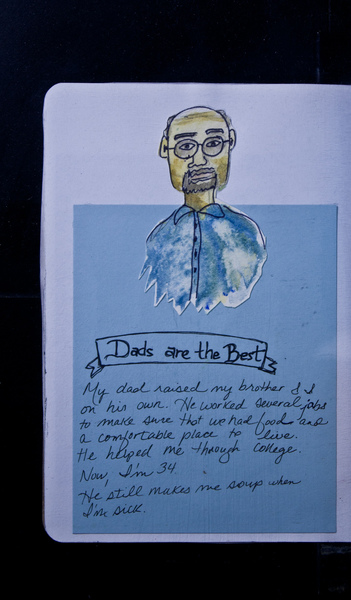 Dads are the Best
My dad raised my brother & I
on his own. He worked several jobs
to make sure that we had food and
a comfortable place to live.
He helped me through college.
Now, I'm 34.
He still makes me soup when
I'm sick.